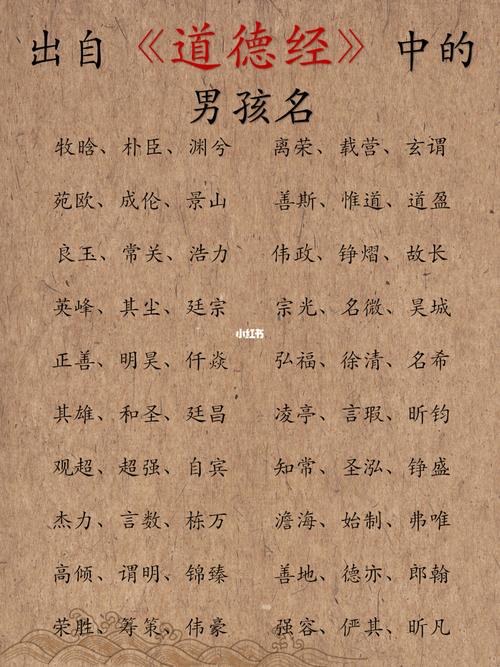 出自《道德经》中的
男孩名
牧晗、朴臣、渊兮 离荣、载营、玄谓
苑欧、成伦、景山 善斯、惟道、道盈
良玉、常关、浩力 伟政、铮熠、故长
英峰、其尘、廷宗 宗光、名微、昊城
小红书
正善、明昊、仟焱 弘福、徐清、名希
其雄、和圣、廷昌 凌亭、言瑕、昕钧
观超、超强、自宾 知常、圣泓、铮盛
杰力、言数、栋万 澹海、始制、弗唯
高倾、谓明、锦臻 善地、德亦、郎翰
荣胜、筹策、伟豪 强容、俨其、昕凡